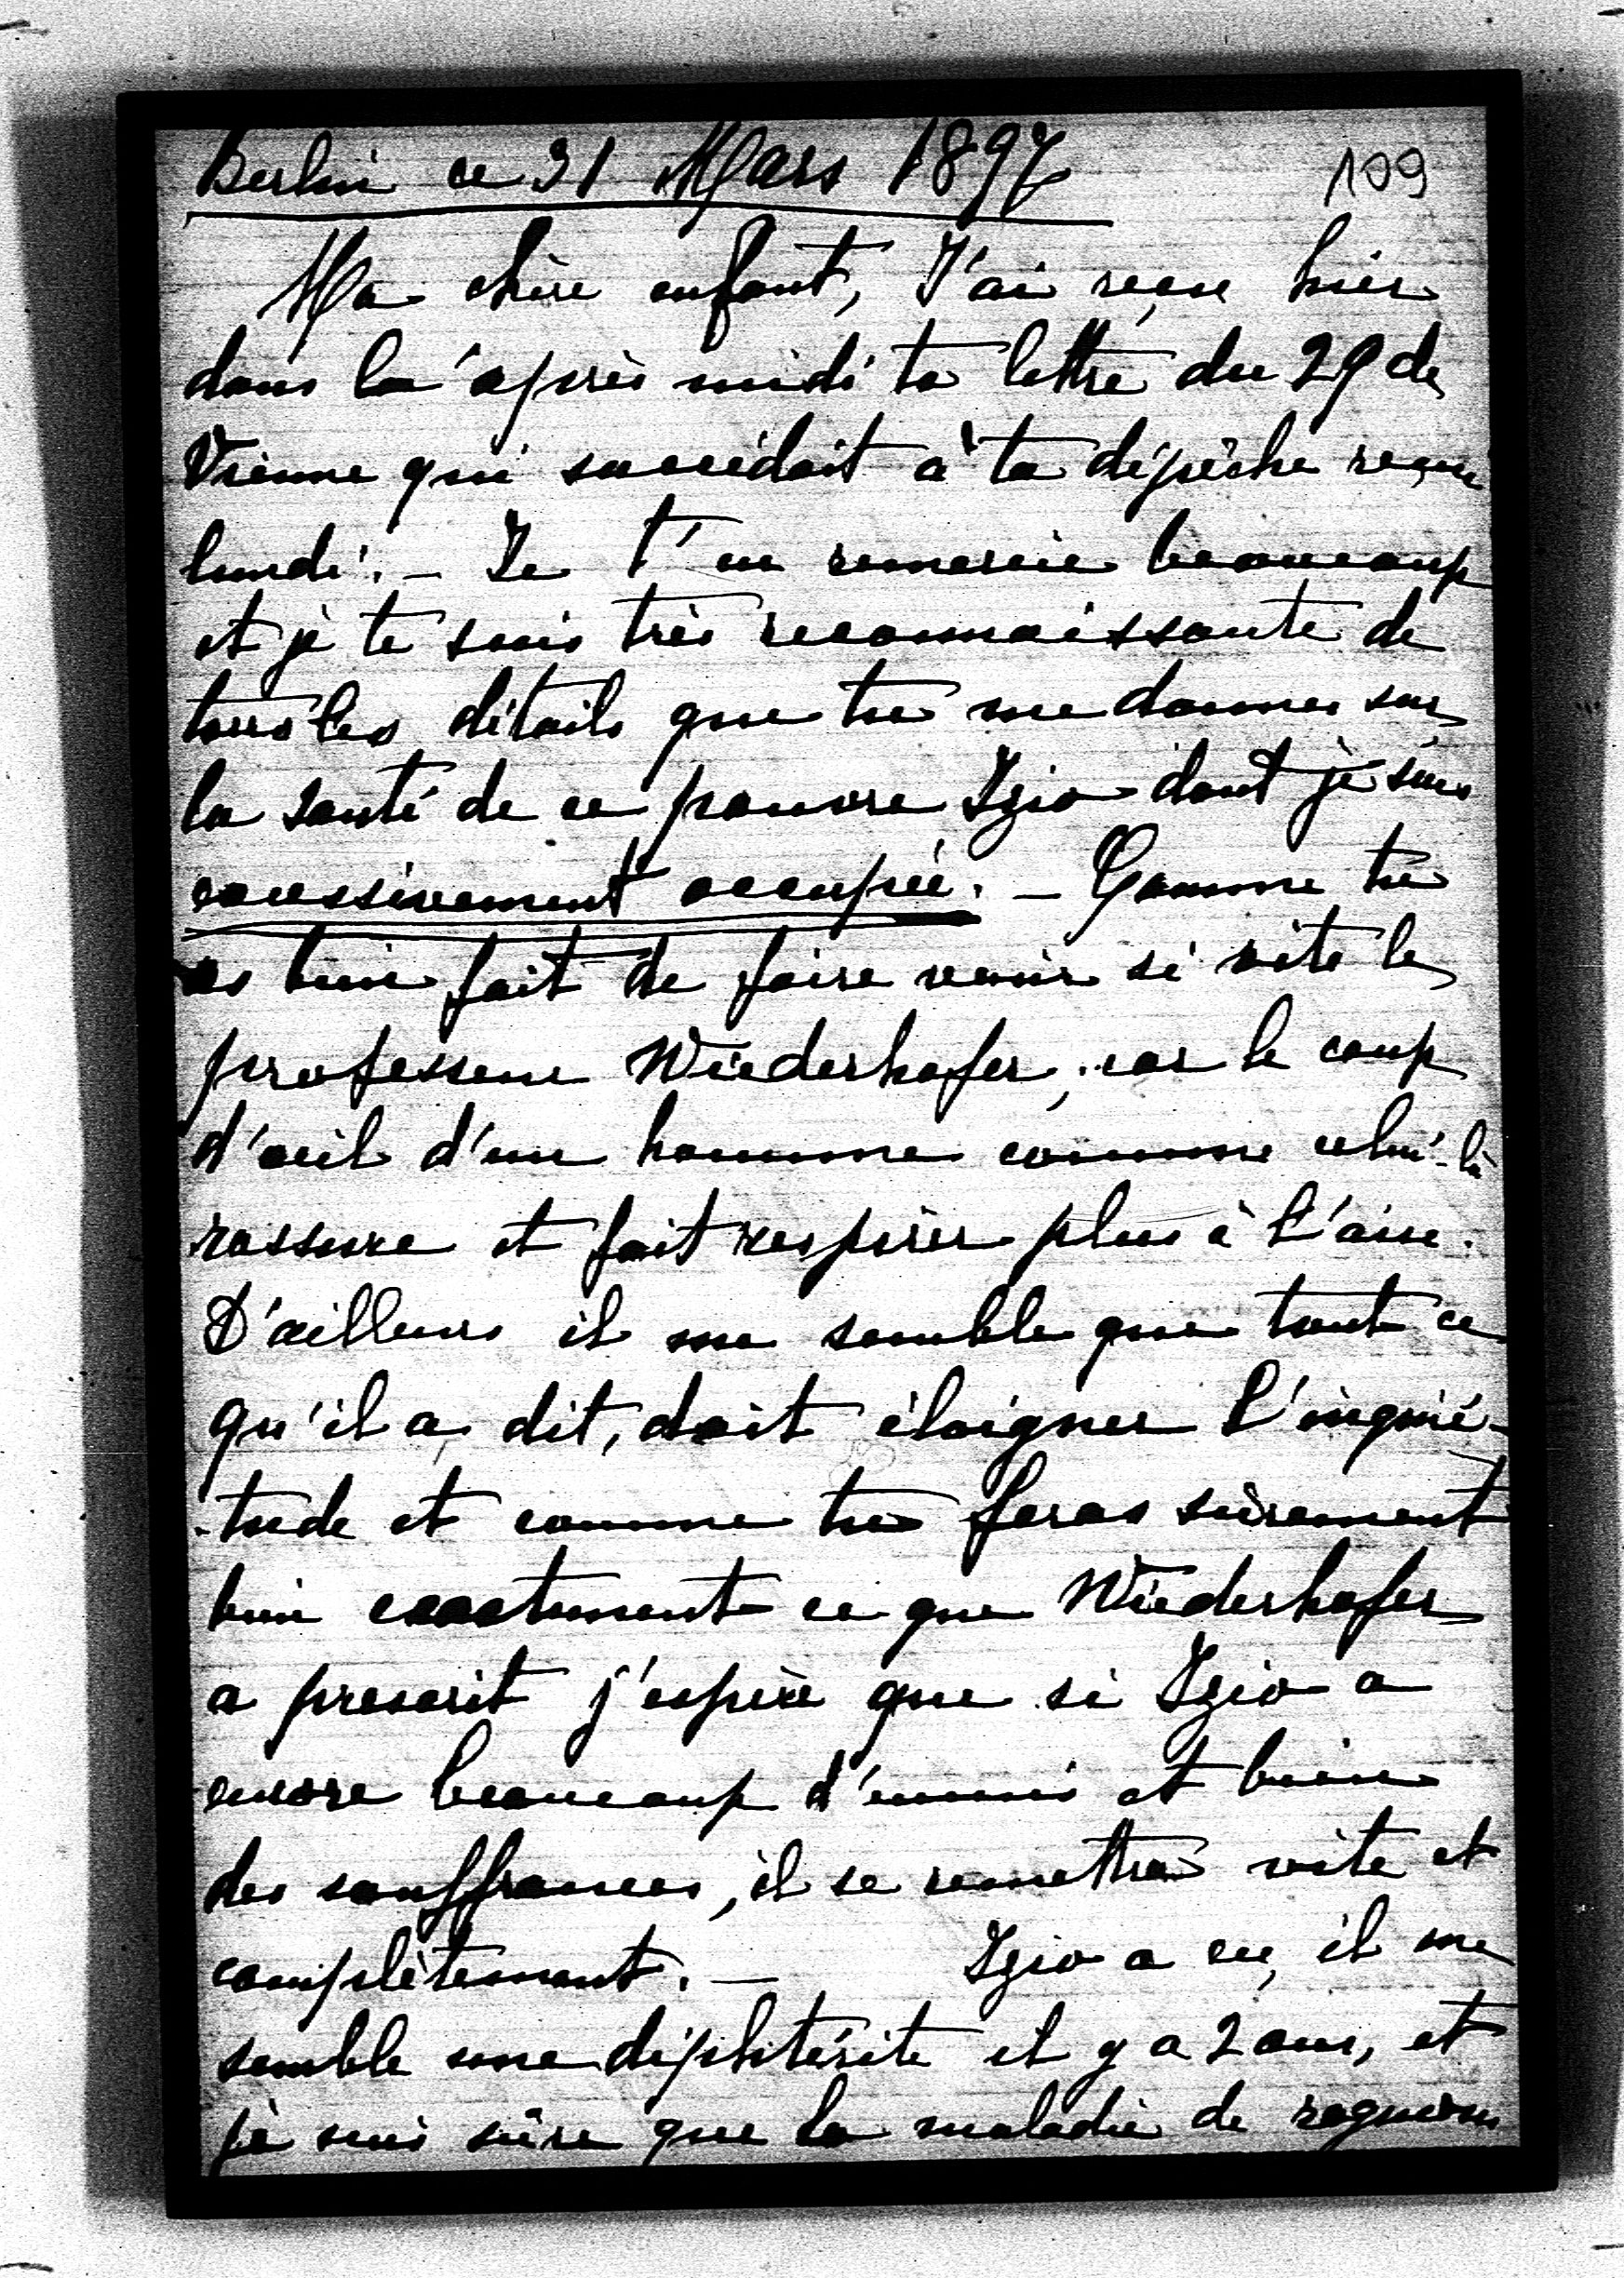 Berlin ce 31 Mars 1897
109
Ma chère enfant, J'ai reçu hier
dans la'après midi ta lettre du 29 de
Vienne qui succédait à ta dépêche reçue
lundi. – Je t'en remercie beaucoup
et je te suis très reconnaissante de
tous les détails que tu me donnes sur
la santé de ce pauvre Izio dont je suis
excessivement occupée. – Comme tu
as bien fait de faire venir si vite le
professeur Wiederhofer, car le coup
d'œil d'un homme comme celui-là
rassure et fait respirer plus à l'aise.
D'ailleurs il me semble que tout ce
qu'il a dit, doit éloigner l'inquié-
-tude et comme tu feras sûrement
bien exactement ce que Wiederhofer
a prescrit j'espère que si Izio a
encore beaucoup d'ennuis et bien
des souffrances, il se remettra vite et
complètement. – Izio a eu, il me
semble une diphtérite il y a 2 ans, et
je suis sûre que la maladie de rognons